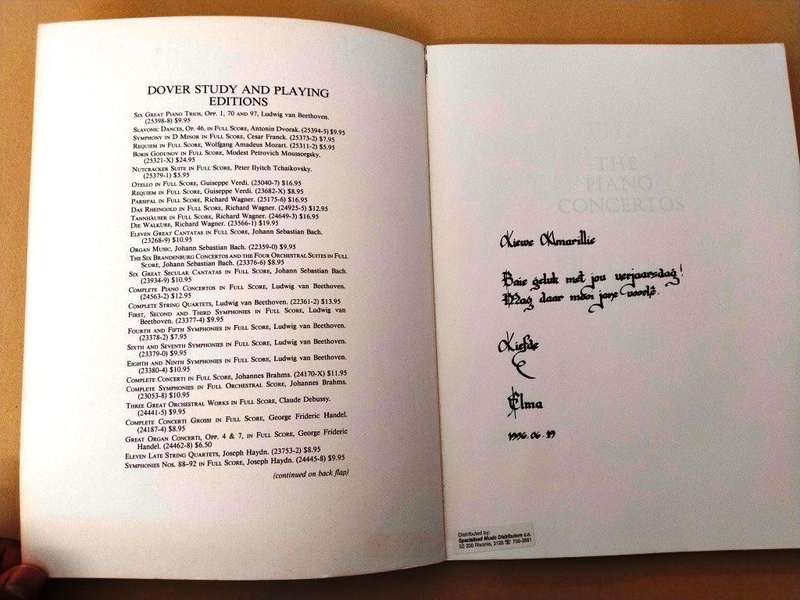 DOVER STUDY AND PLAYING
EDITIONS
SIX GREAT PIANO TRIOS, OPP. 1, 70 AND 97, Ludwig van Beethoven.
(25398-8) $9.95
SLAVONIC DANCES, OP. 46, IN FULL SCORE, Antonin Dvorak. (25394-5) $9.95
SYMPHONY IN D MINOR IN FULL SCORE, Cesar Franck. (25373-2) $7.95
REQUIEM IN FULL SCORE, Wolfgang Amadeus Mozart. (25311-2) $5.95
BORIS GODUNOV IN FULL SCORE, Modest Petrovich Moussorgsky.
(25321-X) $24.95
NUTCRACKER SUITE IN FULL SCORE, Peter Ilyitch Tchaikovsky.
(25379-1) $5.95
OTELLO IN FULL SCORE, Guiseppe Verdi. (25040-7) $16.95
REQUIEM IN FULL SCORE, Guiseppe Verdi. (23682-X) $8.95
PARSIFAL IN FULL SCORE, Richard Wagner. (25175-6) $16.95
DAS RHEINGOLD IN FULL SCORE, Richard Wagner. (24925-5) $12.95
TANNHÄUSER IN FULL SCORE, Richard Wagner. (24649-3) $16.95
DIE WALKÜRE, Richard Wagner. (23566-1) $19.95
ELEVEN GREAT CANTATAS IN FULL SCORE, Johann Sebastian Bach.
(23268-9) $10.95
ORGAN MUSIC, Johann Sebastian Bach. (22359-0) $9.95
THE SIX BRANDENBURG CONCERTOS AND THE FOUR ORCHESTRAL SUITES IN FULL
SCORE, Johann Sebastian Bach. (23376-6) $8.95
SIX GREAT SECULAR CANTATAS IN FULL SCORE, Johann Sebastian Bach.
(23934-9) $10.95
COMPLETE PIANO CONCERTOS IN FULL SCORE, Ludwig van Beethoven.
(24563-2) $12.95
COMPLETE STRING QUARTETS, Ludwig van Beethoven. (22361-2) $13.95
FIRST, SECOND AND THIRD SYMPHONIES IN FULL SCORE, Ludwig van
Beethoven. (23377-4) $9.95
FOURTH AND FIFTH SYMPHONIES IN FULL SCORE, Ludwig van Beethoven.
(23378-2) $7.95
SIXTH AND SEVENTH SYMPHONIES IN FULL SCORE, Ludwig van Beethoven.
(23379-0) $9.95
EIGHTH AND NINTH SYMPHONIES IN FULL SCORE, Ludwig van Beethoven.
(23380-4) $10.95
COMPLETE CONCERTI IN FULL SCORE, Johannes Brahms. (24170-X) $11.95
COMPLETE SYMPHONIES IN FULL ORCHESTRAL SCORE, Johannes Brahms.
(23053-8) $10.95
THREE GREAT ORCHESTRAL WORKS IN FULL SCORE, Claude Debussy.
(24441-5) $9.95
COMPLETE CONCERTI GROSSI IN FULL SCORE, George Frideric Handel.
(24187-4) $8.95
GREAT ORGAN CONCERTI, OPP. 4 & 7, IN FULL SCORE, George Frideric
Handel. (24462-8) $6.50
ELEVEN LATE STRING QUARTETS, Joseph Haydn. (23753-2) $8.95
SYMPHONIES NOS. 88–92 IN FULL SCORE, Joseph Haydn. (24445-8) $9.95
(continued on back flap)
THE
PIANO
CONCERTOS
Liewe Amarillie
Baie geluk met jou verjaarsdag!
Mag daar mooi jare voorlê.
Liefde
Elma
1996.06.19
Distributed by:
Specialised Music Distributors c.c.
Rivonia, 2128